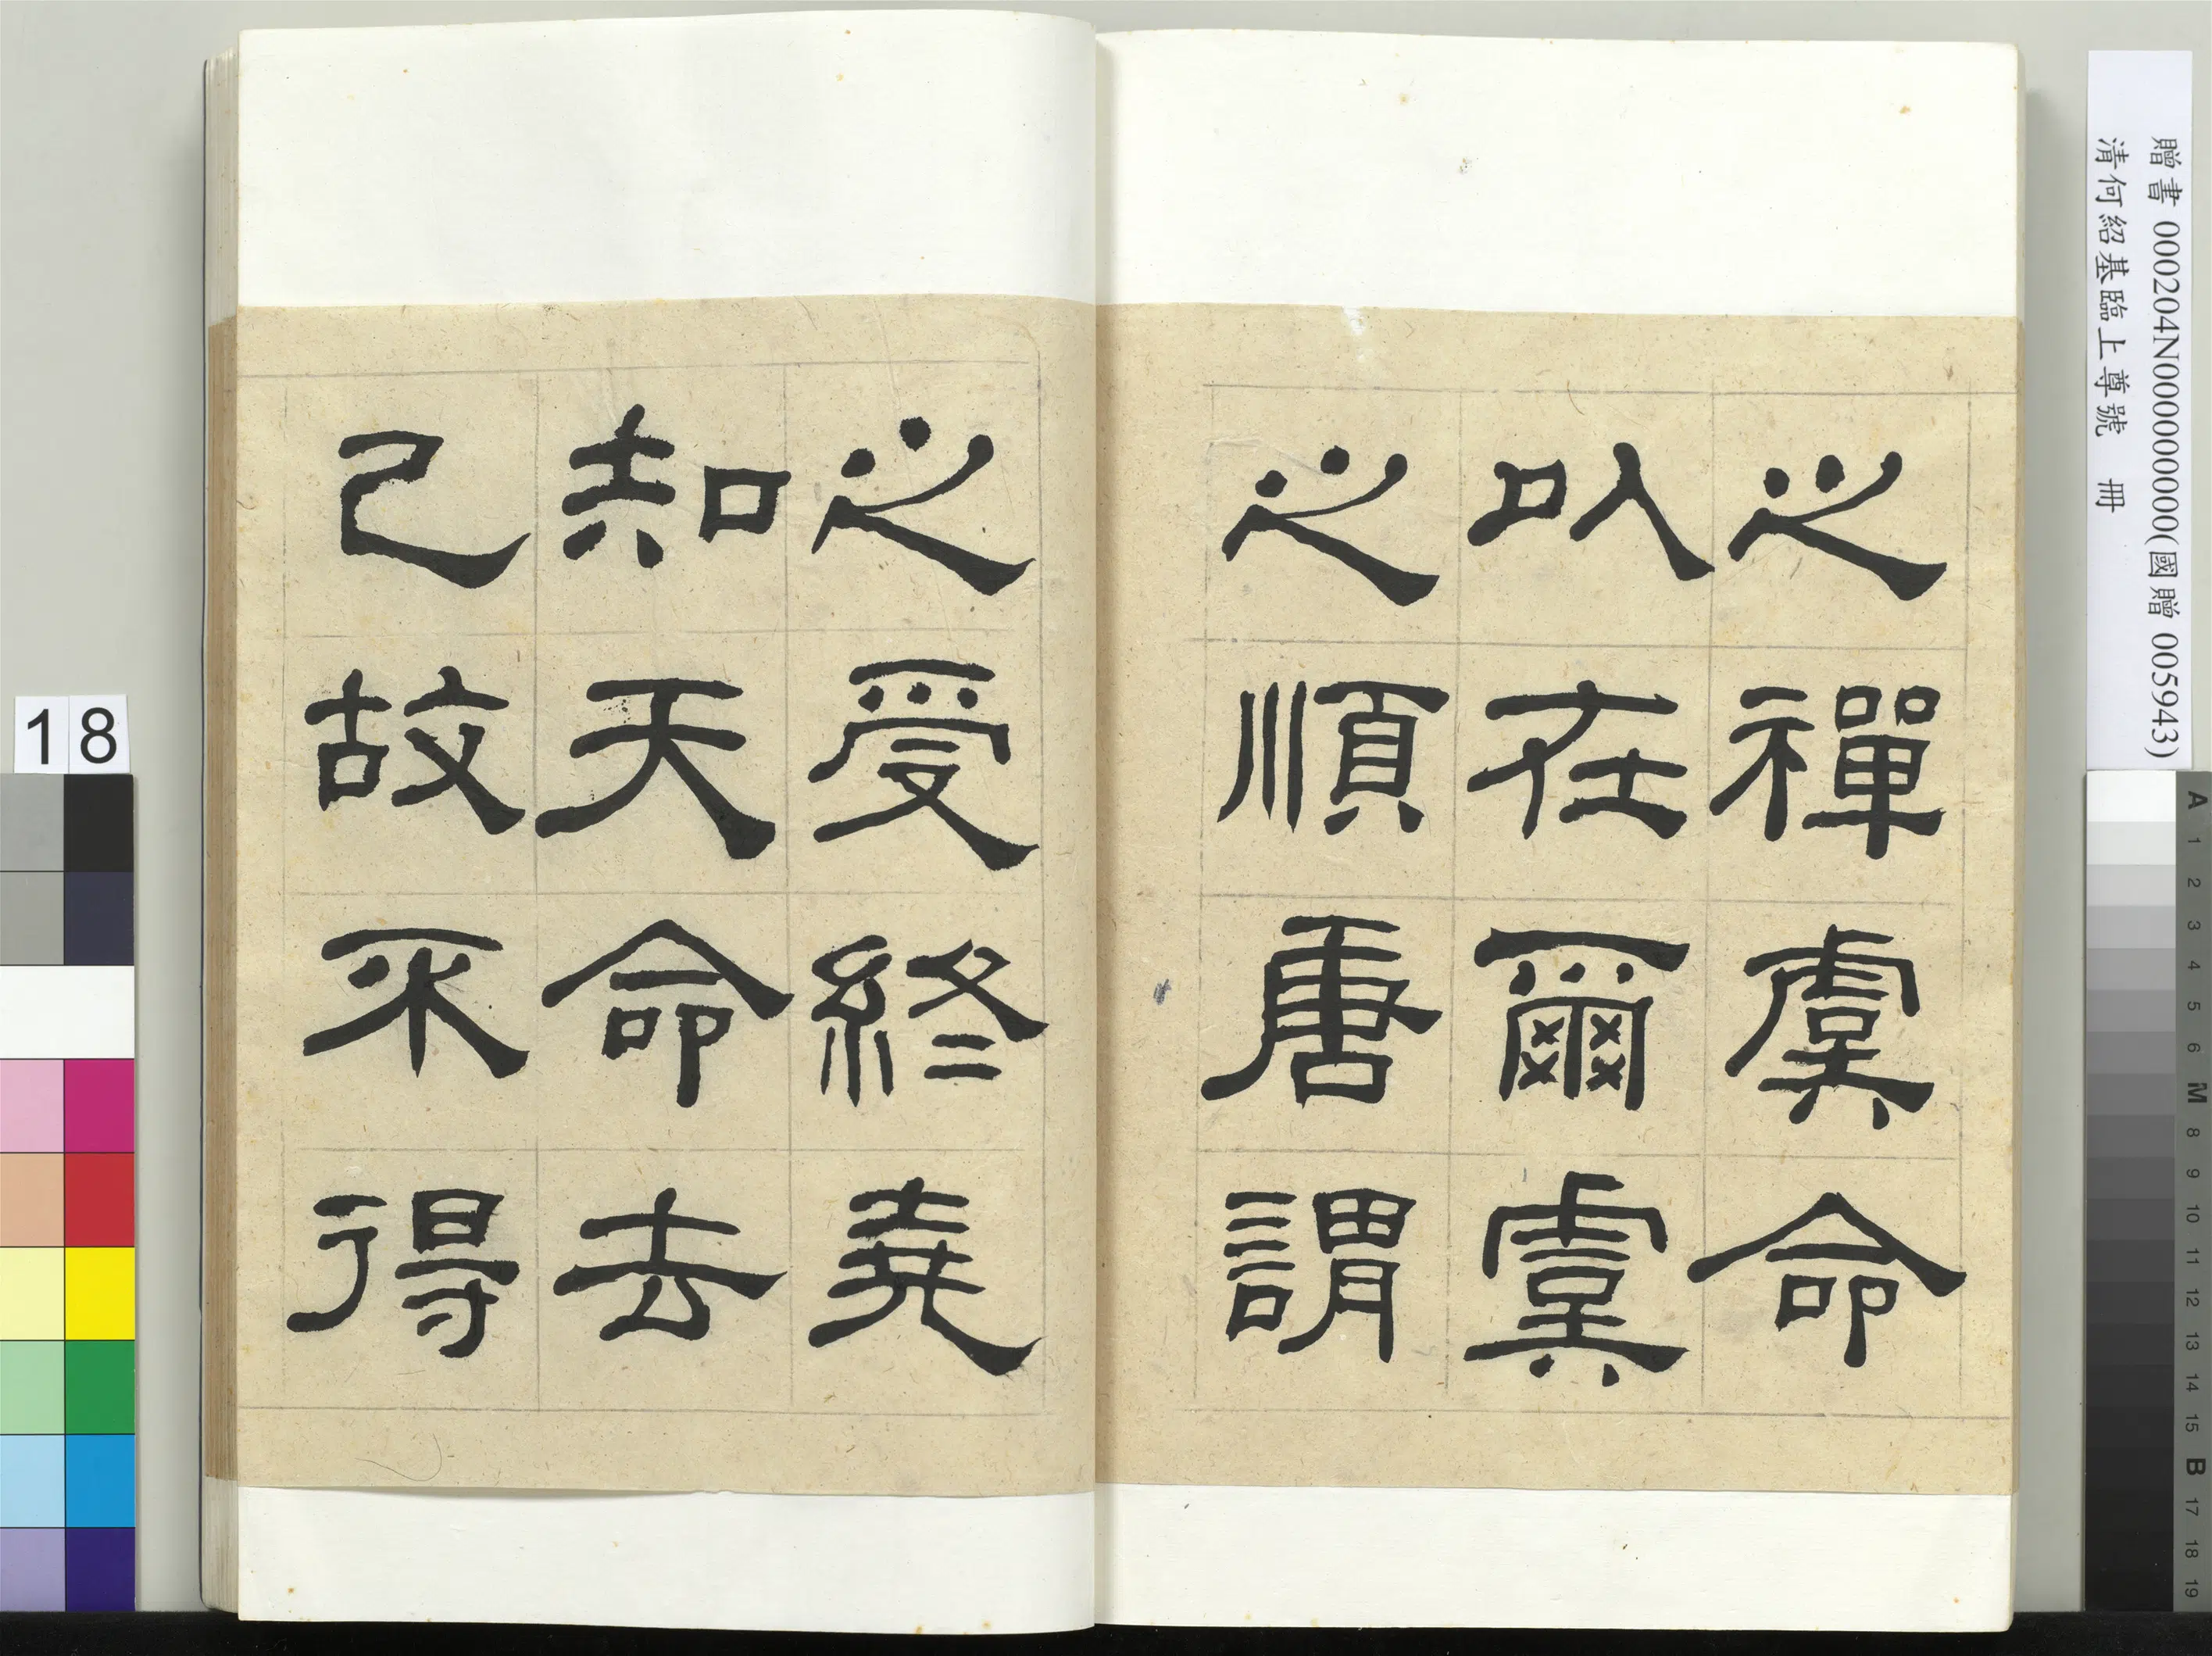 贈書 000204N000000000(國贈 005943)
清何紹基臨上尊號 冊
之禪虞命
以在爾虞
之順唐謂
之受終堯
知天命去
己故不得
18
A 1 2 3 4 5 6 M 8 9 10 11 12 13 14 15 B 17 18 19